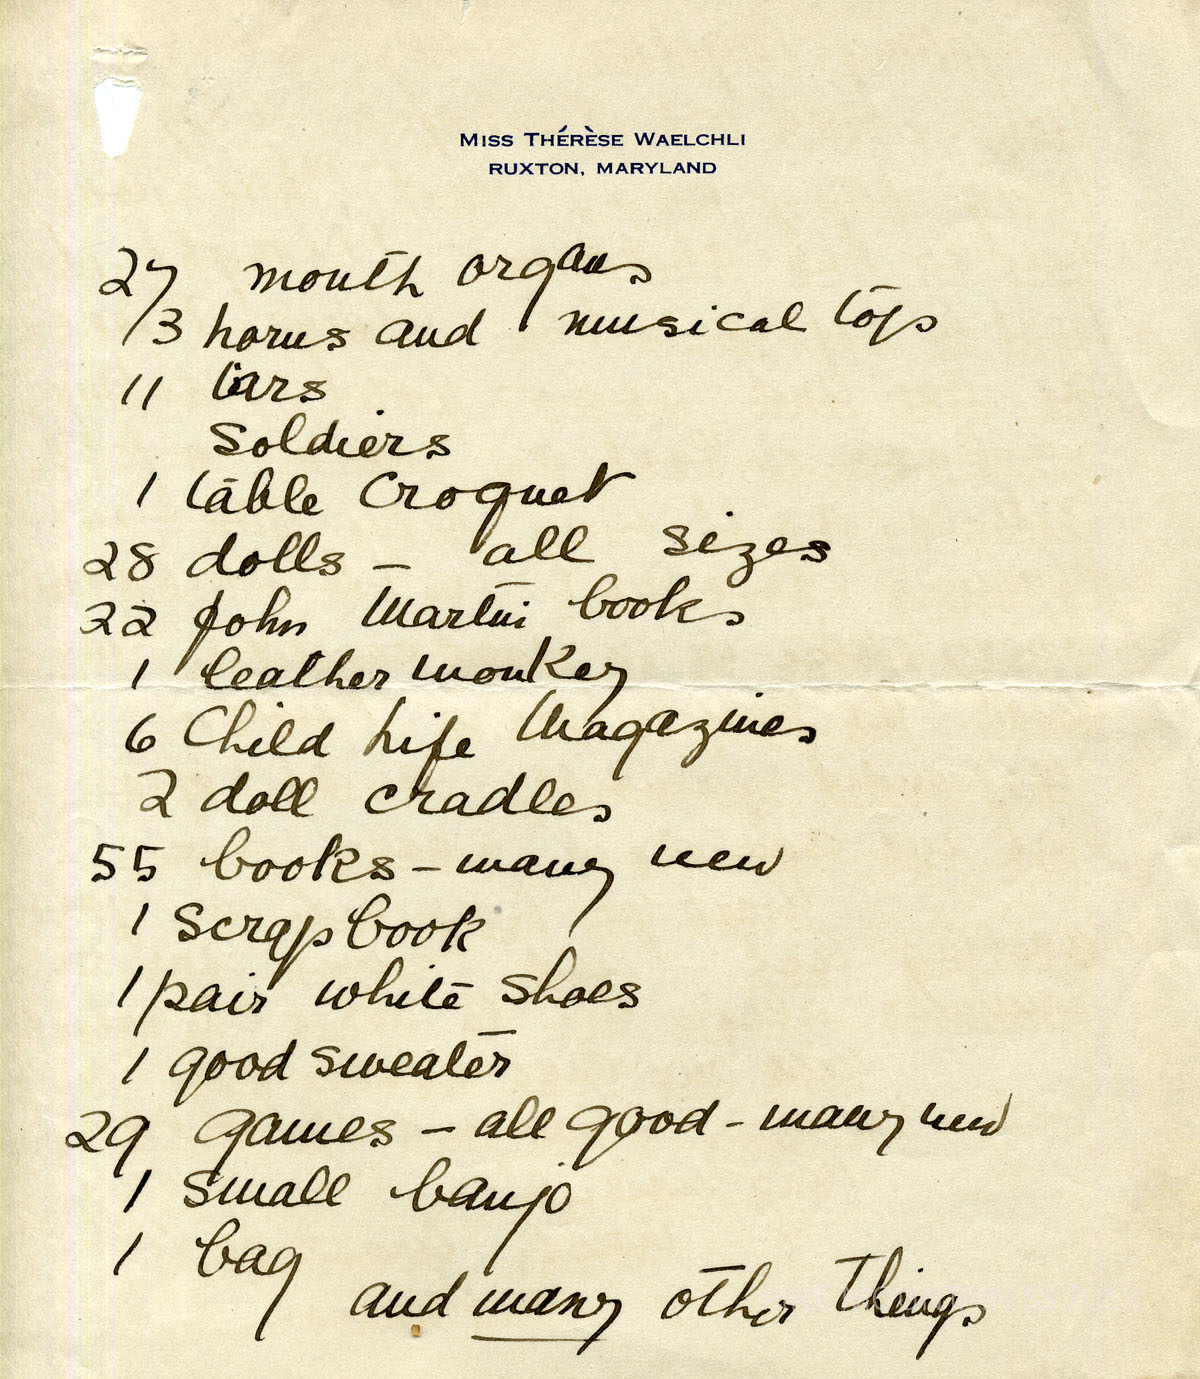 MISS THÉRÈSE WAELCHLI
RUXTON, MARYLAND
27 mouth organs
13 horns and musical tops
11
Soldiers
1 table Croquet
28 dolls – all sizes
22 John Martin books
1 leather monkey
6 Child Life Magazines
2 doll cradles
55 books – many new
1 scrap book
1 pair white shoes
1 good sweater
29 games – all good – many new
1 small banjo
1 bag
and many other things